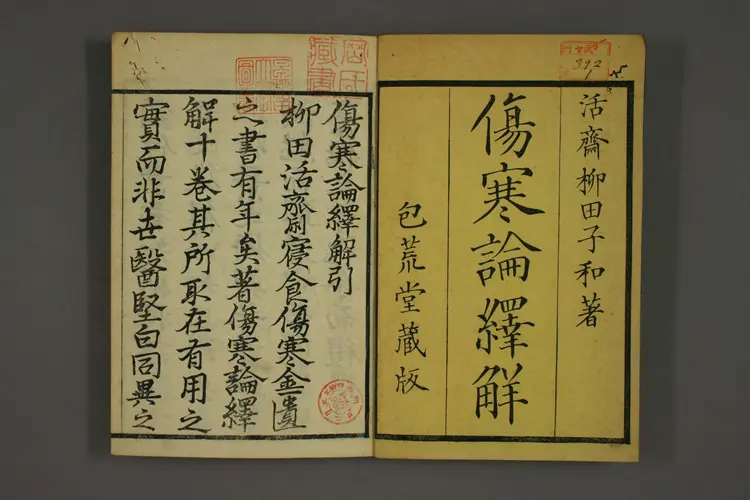 活齋柳田子和著
傷寒論繹解
包荒堂藏版
392
1
傷寒論繹解引
柳田活齋寢食傷寒金匱
之書有年矣著傷寒論繹
解十卷其所取在有用之
實而非世醫堅白同異之